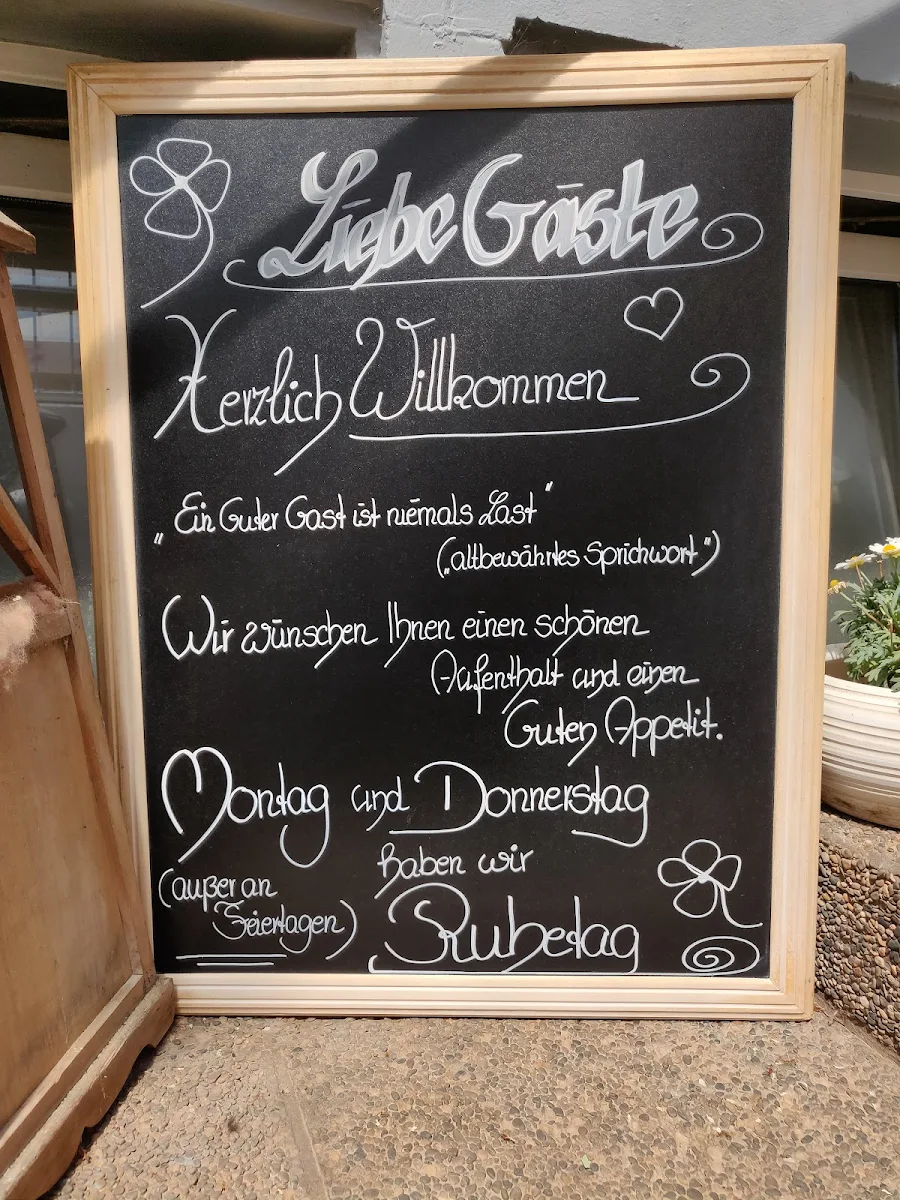 Liebe Gäste
Herzlich Willkommen
„Ein Guter Gast ist niemals Last“
(„altbewährtes Sprichwort“)
Wir wünschen Ihnen einen schönen
Aufenthalt und einen
Guten Appetit.
Montag und Donnerstag
haben wir
(außer an
Feiertagen)
Ruhetag